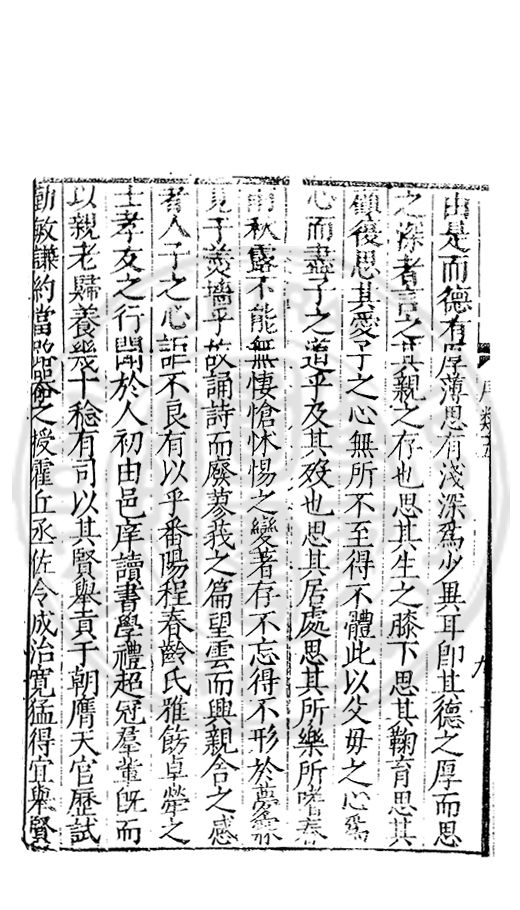 由是而德有厚薄思有淺深爲少異耳卽其德之厚而思
之深者言之其親之存也思其生之膝下思其鞠育思其
顧復思其愛子之心無所不至得不體此以父母之心爲
心而盡子之道乎及其歿也思其居處思其所樂所嗜春
雨秋露不能無悽愴怵惕之變著存不忘得不形於夢寐
見于羹墻乎故誦詩而廢蓼莪之篇望雲而興親舍之感
者人子之心詎不良有以乎番陽程春齡氏雅飭卓犖之
士孝友之行聞於人初由邑庠讀書學禮超冠羣輩旣而
以親老歸養幾十稔有司以其賢舉貢于朝膺天官歷試
勤敏謙約當路器之授霍丘丞佐令成治寬猛得宜舉賢
序類
九